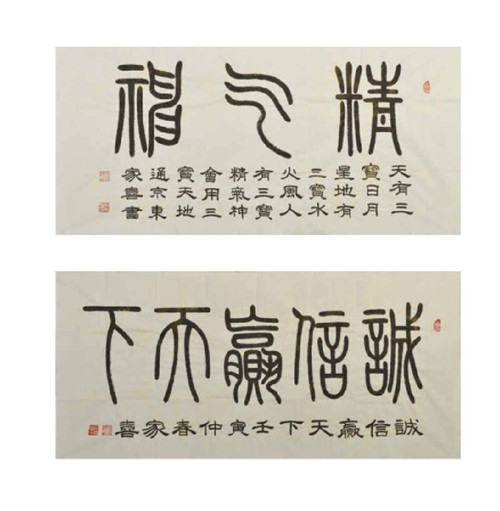 精气神
天有三
寶日月
星地有
三寶水
火風人
有三寶
精氣神
會用三
寶天地
通京東
家喜書
誠信贏天下
誠信贏天下壬寅仲春家喜